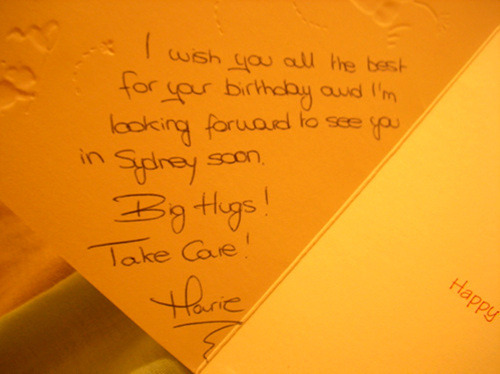 I wish you all the best
for your birthday and I'm
looking forward to see you
in Sydney soon.
Big Hugs!
Take Care!
Marie
Happy